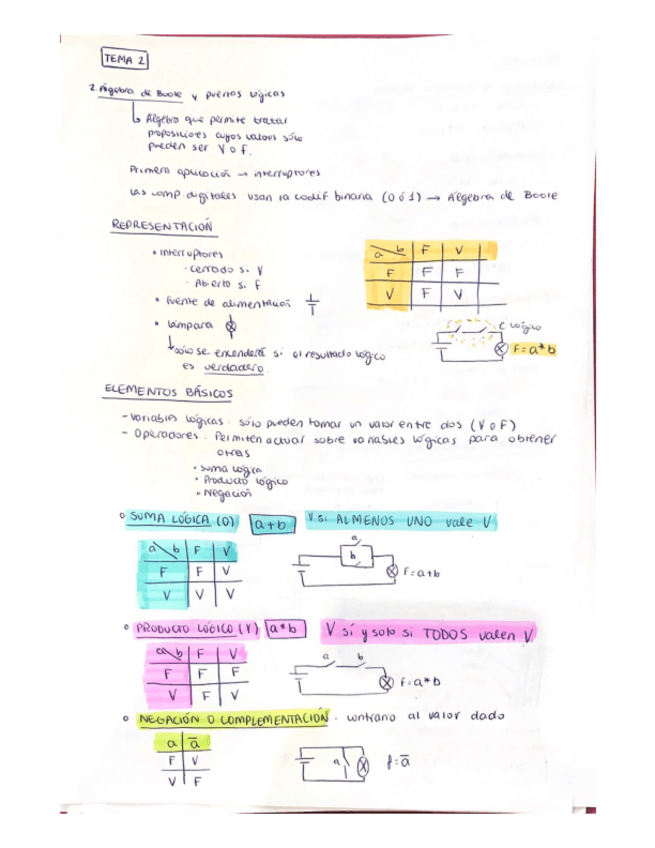 TEMA 2
2. Álgebra de Boole y puertas lógicas
Álgebra que permite tratar
proposiciones cuyos valores sólo
pueden ser V o F.
Primera aplicación → interruptores
Las comp. digitales usan la codif binaria (0 ó 1) → Álgebra de Boole
REPRESENTACIÓN
• Interruptores
- Cerrado si V
- Abierto si F
• Fuente de alimentación
• Lámpara
sólo se encenderá si el resultado lógico
es verdadero.
a b F V
F F F
V F V
C lógico
F = a * b
ELEMENTOS BÁSICOS
- Variables lógicas: sólo pueden tomar un valor entre dos (V o F)
- Operadores: Permiten actuar sobre variables lógicas para obtener
otras
• Suma lógica
• Producto lógico
• Negación
o SUMA LÓGICA (O) a+b V si AL MENOS UNO vale V
a b F V
F F V
V V V
a
b
F = a+b
o PRODUCTO LÓGICO (Y) a*b V sí y solo si TODOS valen V
a b F V
F F F
V F V
a b
F = a*b
o NEGACIÓN O COMPLEMENTACIÓN. contrario al valor dado
a a̅
F V
V F
a
f = a̅